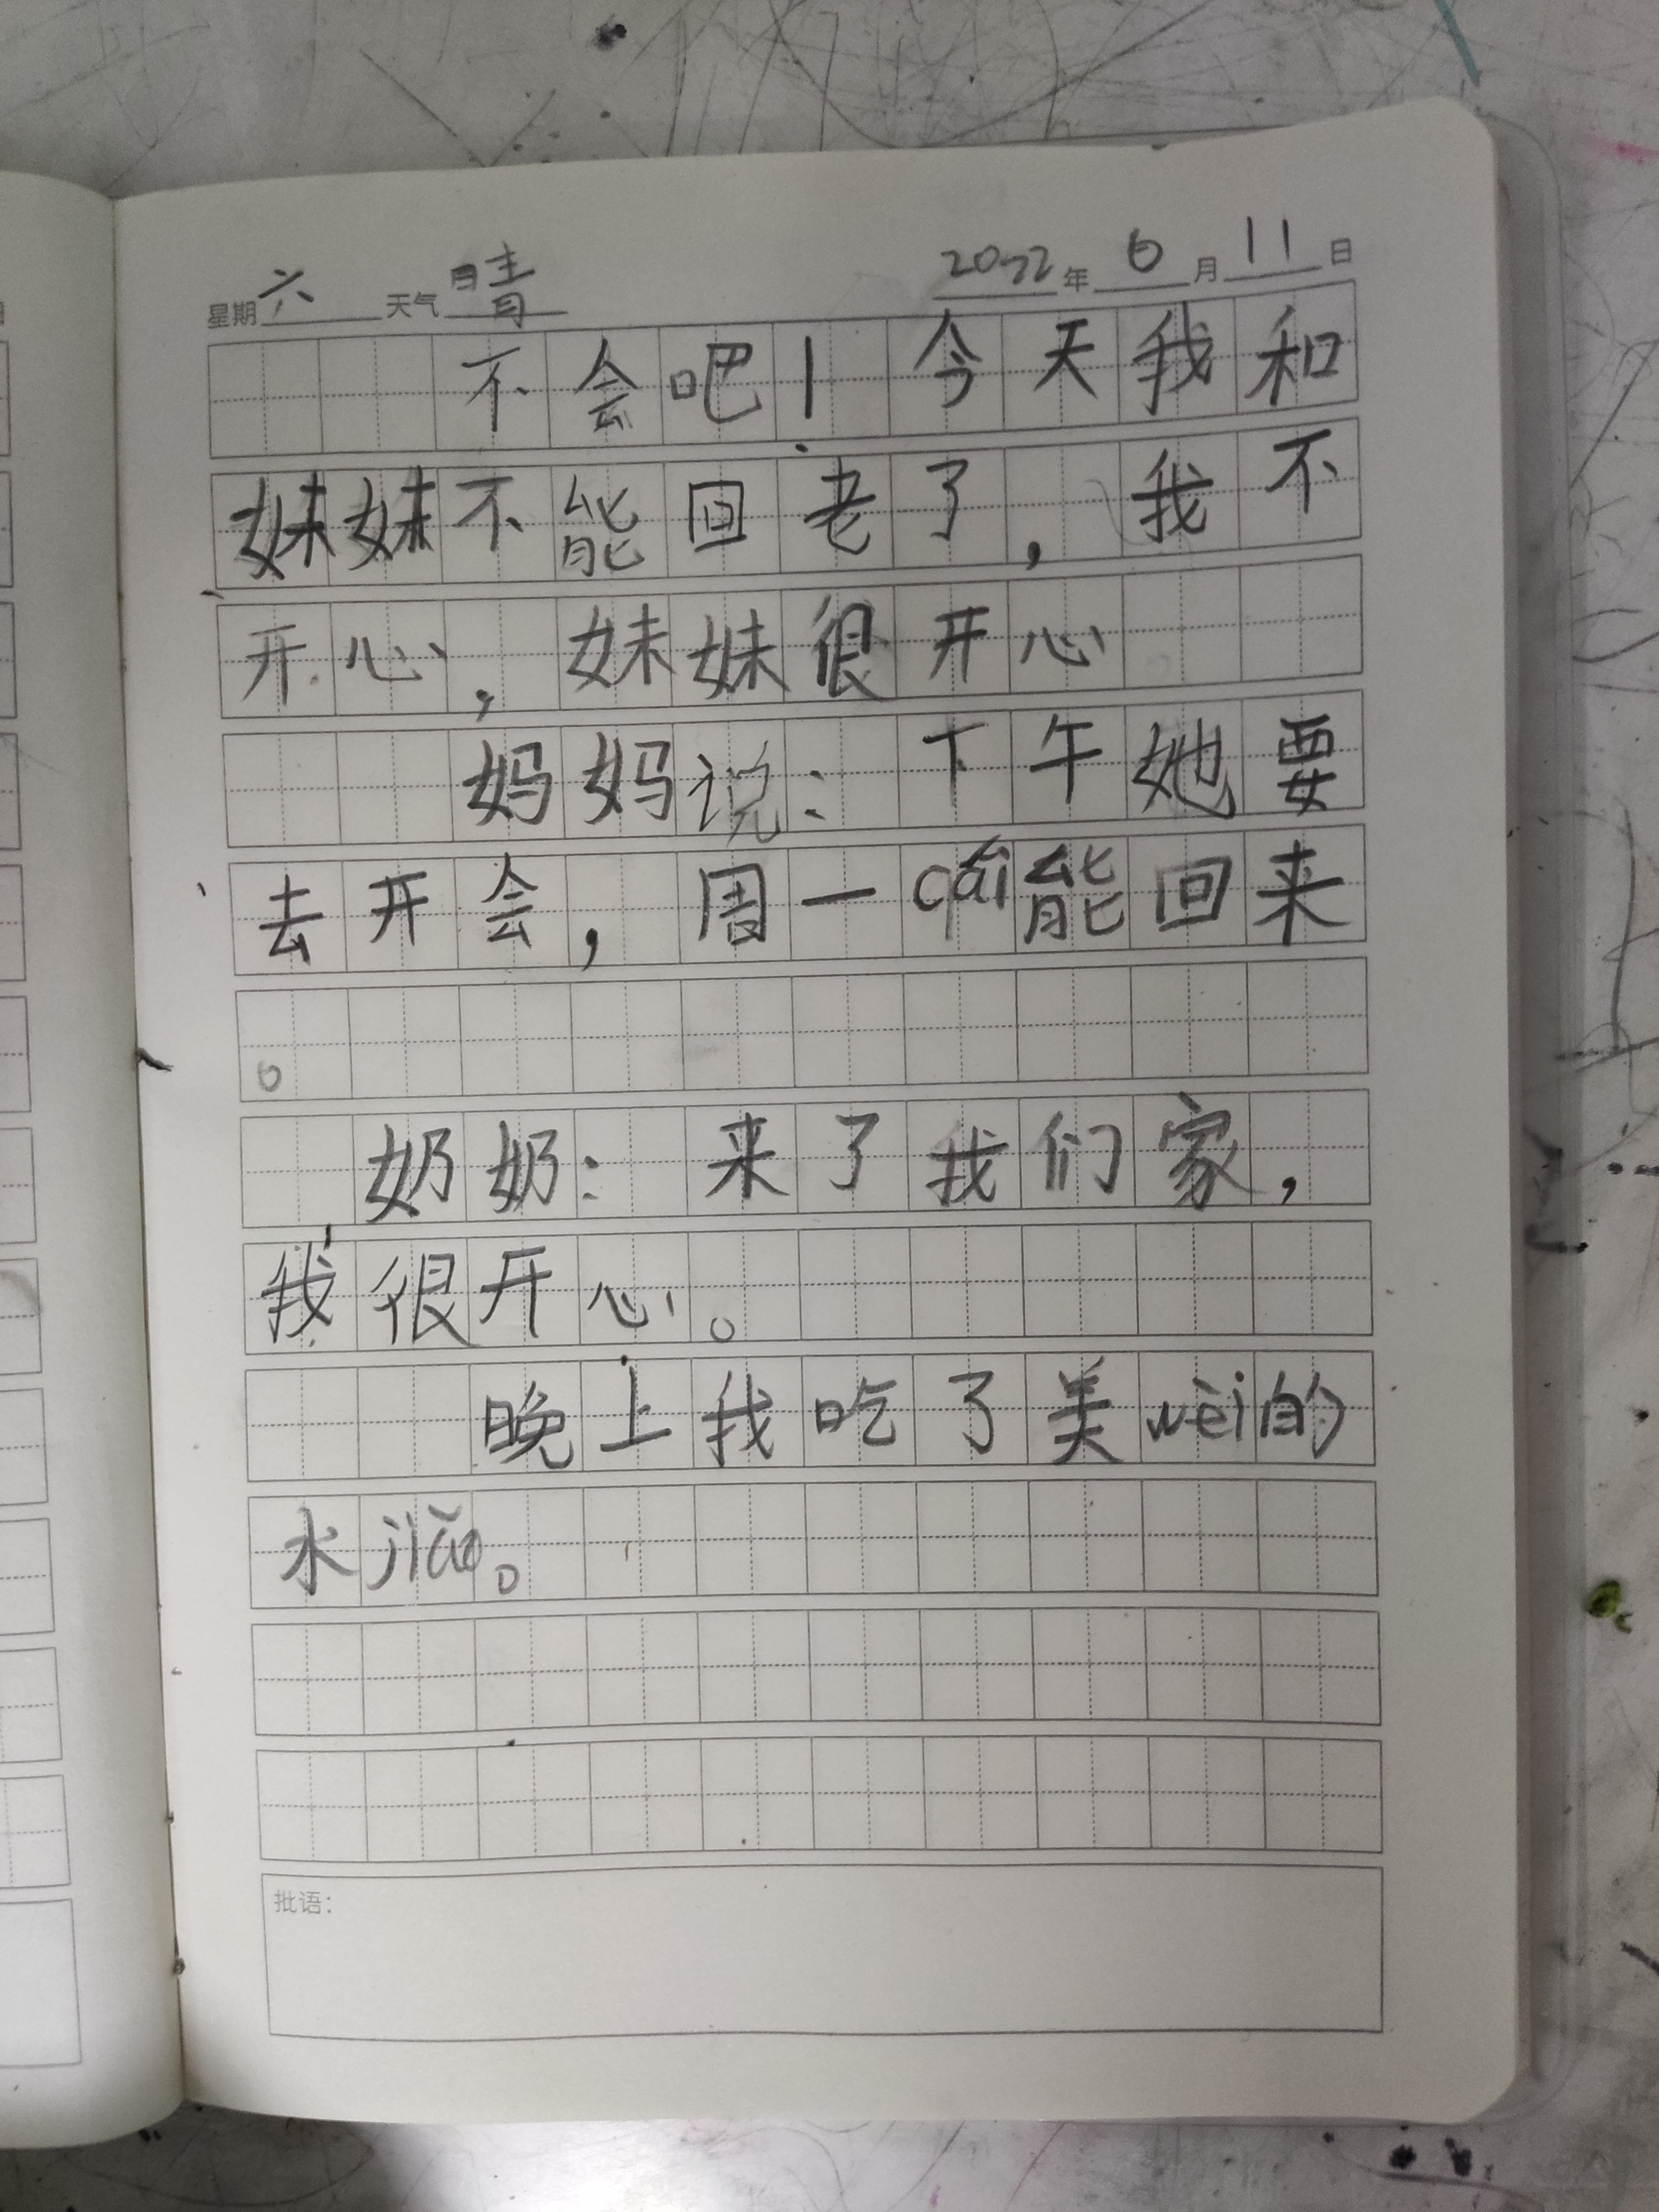 星期六 天气晴 2022年6月11日
不会吧！今天我和
妹妹不能回老了，我不
开心，妹妹很开心
妈妈说：下午她要
去开会，周一cái能回来
。
奶奶：来了我们家，
我很开心。
晚上我吃了美wèi的
水jiǎo。
批语：